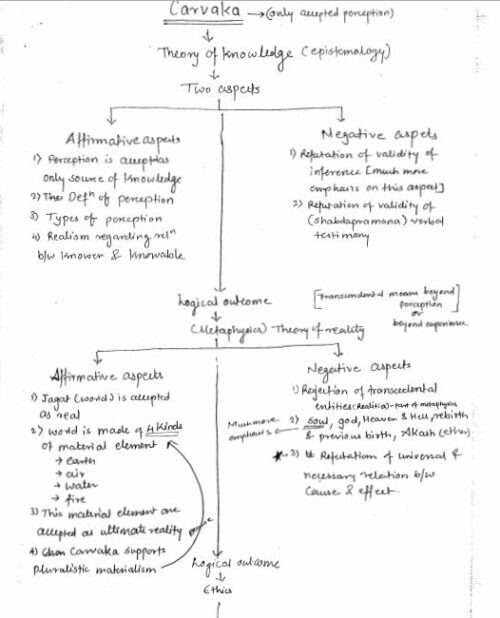 Carvaka → (only accepted perception)
Theory of knowledge (epistemology)
Two aspects
Affirmative aspects
1) Perception is accept as
only source of knowledge
2) The Defⁿ of perception
3) Types of perception
4) Realism regarding relⁿ
b/w knower & knowable
Negative aspets
1) Refutation of validity of
inference [much more
emphasis on this aspect]
2) Refutation of validity of
(shabdapramana) verbal
testimony
Logical outcome
[Transcendental means beyond
perception
or
beyond experience]
(Metaphysics) Theory of reality
Affirmative aspects
1) Jagat (world) is accepted
as real
2) World is made of 4 kinds
of material element
→ earth
→ air
→ water
→ fire
3) This material element are
accepted as ultimate reality
4) Carvaka supports
pluralistic materialism
Negative aspects
1) Rejection of transcedental
entities (Realities) - part of metaphysics
Much more
emphasis
2) Soul, god, Heaven & Hell, rebirth
& previous birth, Akash (ether)
3) Refutation of universal &
necessary relation b/w
cause & effect.
Logical outcome
Ethics